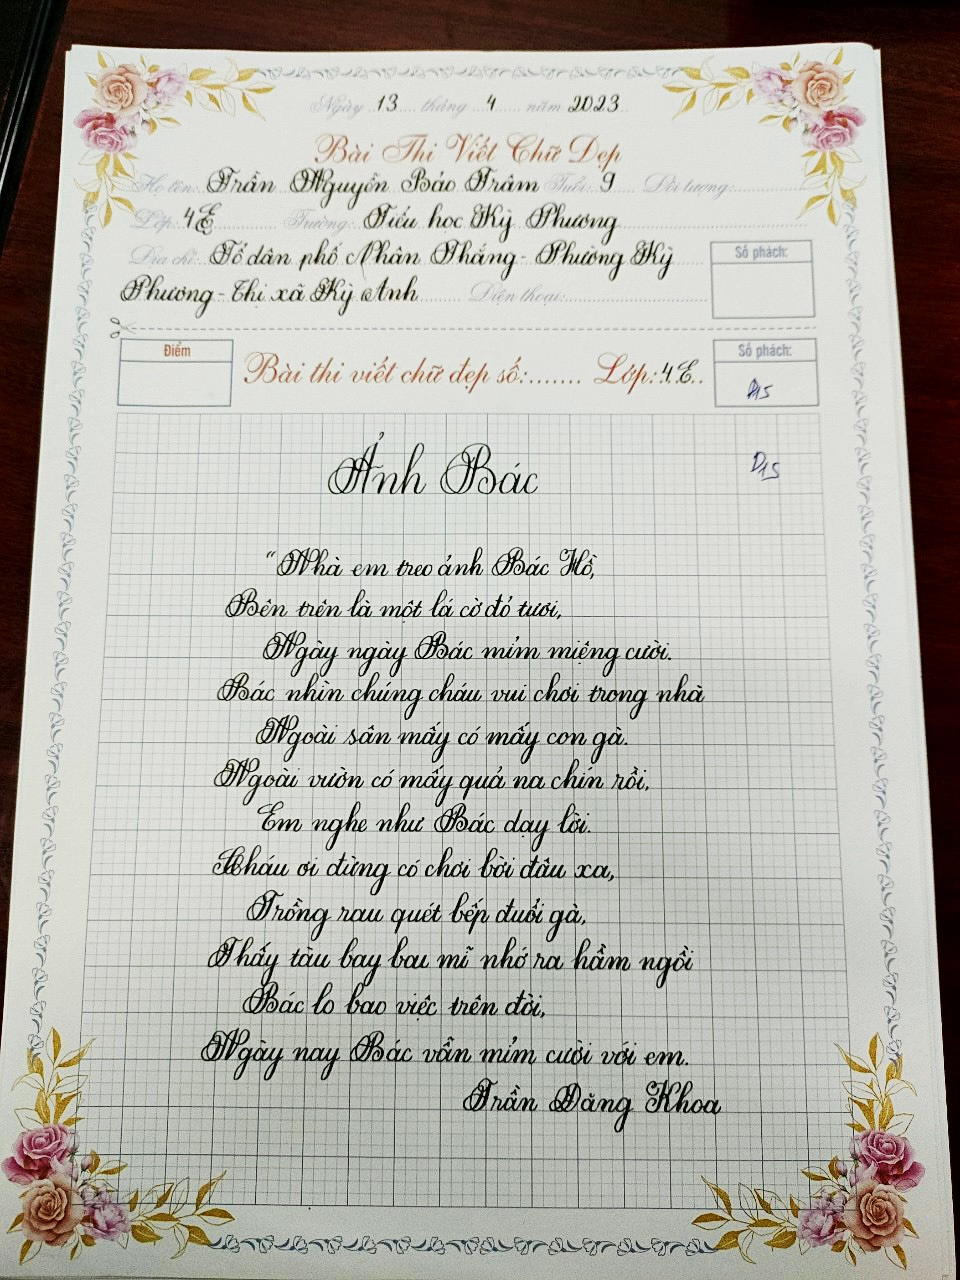 Ngày 13 tháng 4 năm 2023
Bài Thi Viết Chữ Đẹp
Họ tên: Trần Nguyễn Bảo Trâm Tuổi: 9 Đối tượng:
Lớp: 4E Trường: Tiểu học Kỳ Phương
Địa chỉ: Tổ dân phố Nhân Thắng - Phường Kỳ
Phương - Thị xã Kỳ Anh Điện thoại:
Số phách:
Điểm
Bài thi viết chữ đẹp số:....... Lớp: 4E..
Số phách:
Đ15
Đ15
Ảnh Bác
"Nhà em treo ảnh Bác Hồ,
Bên trên là một lá cờ đỏ tươi,
Ngày ngày Bác mỉm miệng cười.
Bác nhìn chúng cháu vui chơi trong nhà
Ngoài sân mấy có mấy con gà.
Ngoài vườn có mấy quả na chín rồi,
Em nghe như Bác dạy lời.
Cháu ơi đừng có chơi bời đâu xa,
Trồng rau quét bếp đuổi gà,
Thấy tàu bay bau mĩ nhớ ra hầm ngồi
Bác lo bao việc trên đời,
Ngày nay Bác vẫn mỉm cười với em.
Trần Đăng Khoa